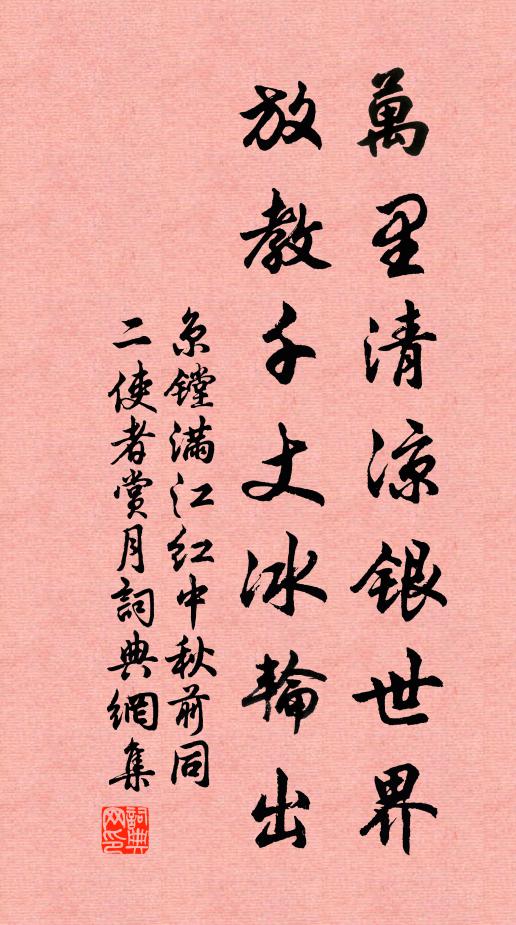 萬里清涼銀世界
放教千丈冰輪出
京鏜滿江紅中秋前同
二使者賞月詞典網集
詞典網印